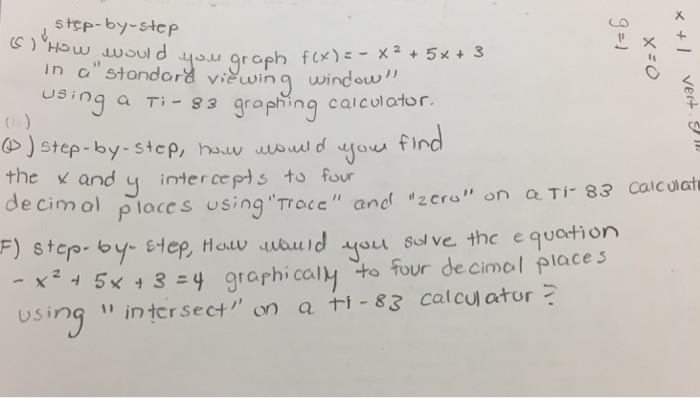 step-by-step
(c) "How would you graph f(x) = - x² + 5x + 3
in a "standard viewing window"
using a Ti-83 graphing calculator.
(D) step-by-step, how would you find
the x and y intercepts to four
decimal places using "Trace" and "zero" on a Ti-83
F) step-by-step, How would you solve the equation
- x² + 5x + 3 = 4 graphically to four decimal places
using "intersect" on a ti-83 calculator?
x + 1 vert.
x = 0